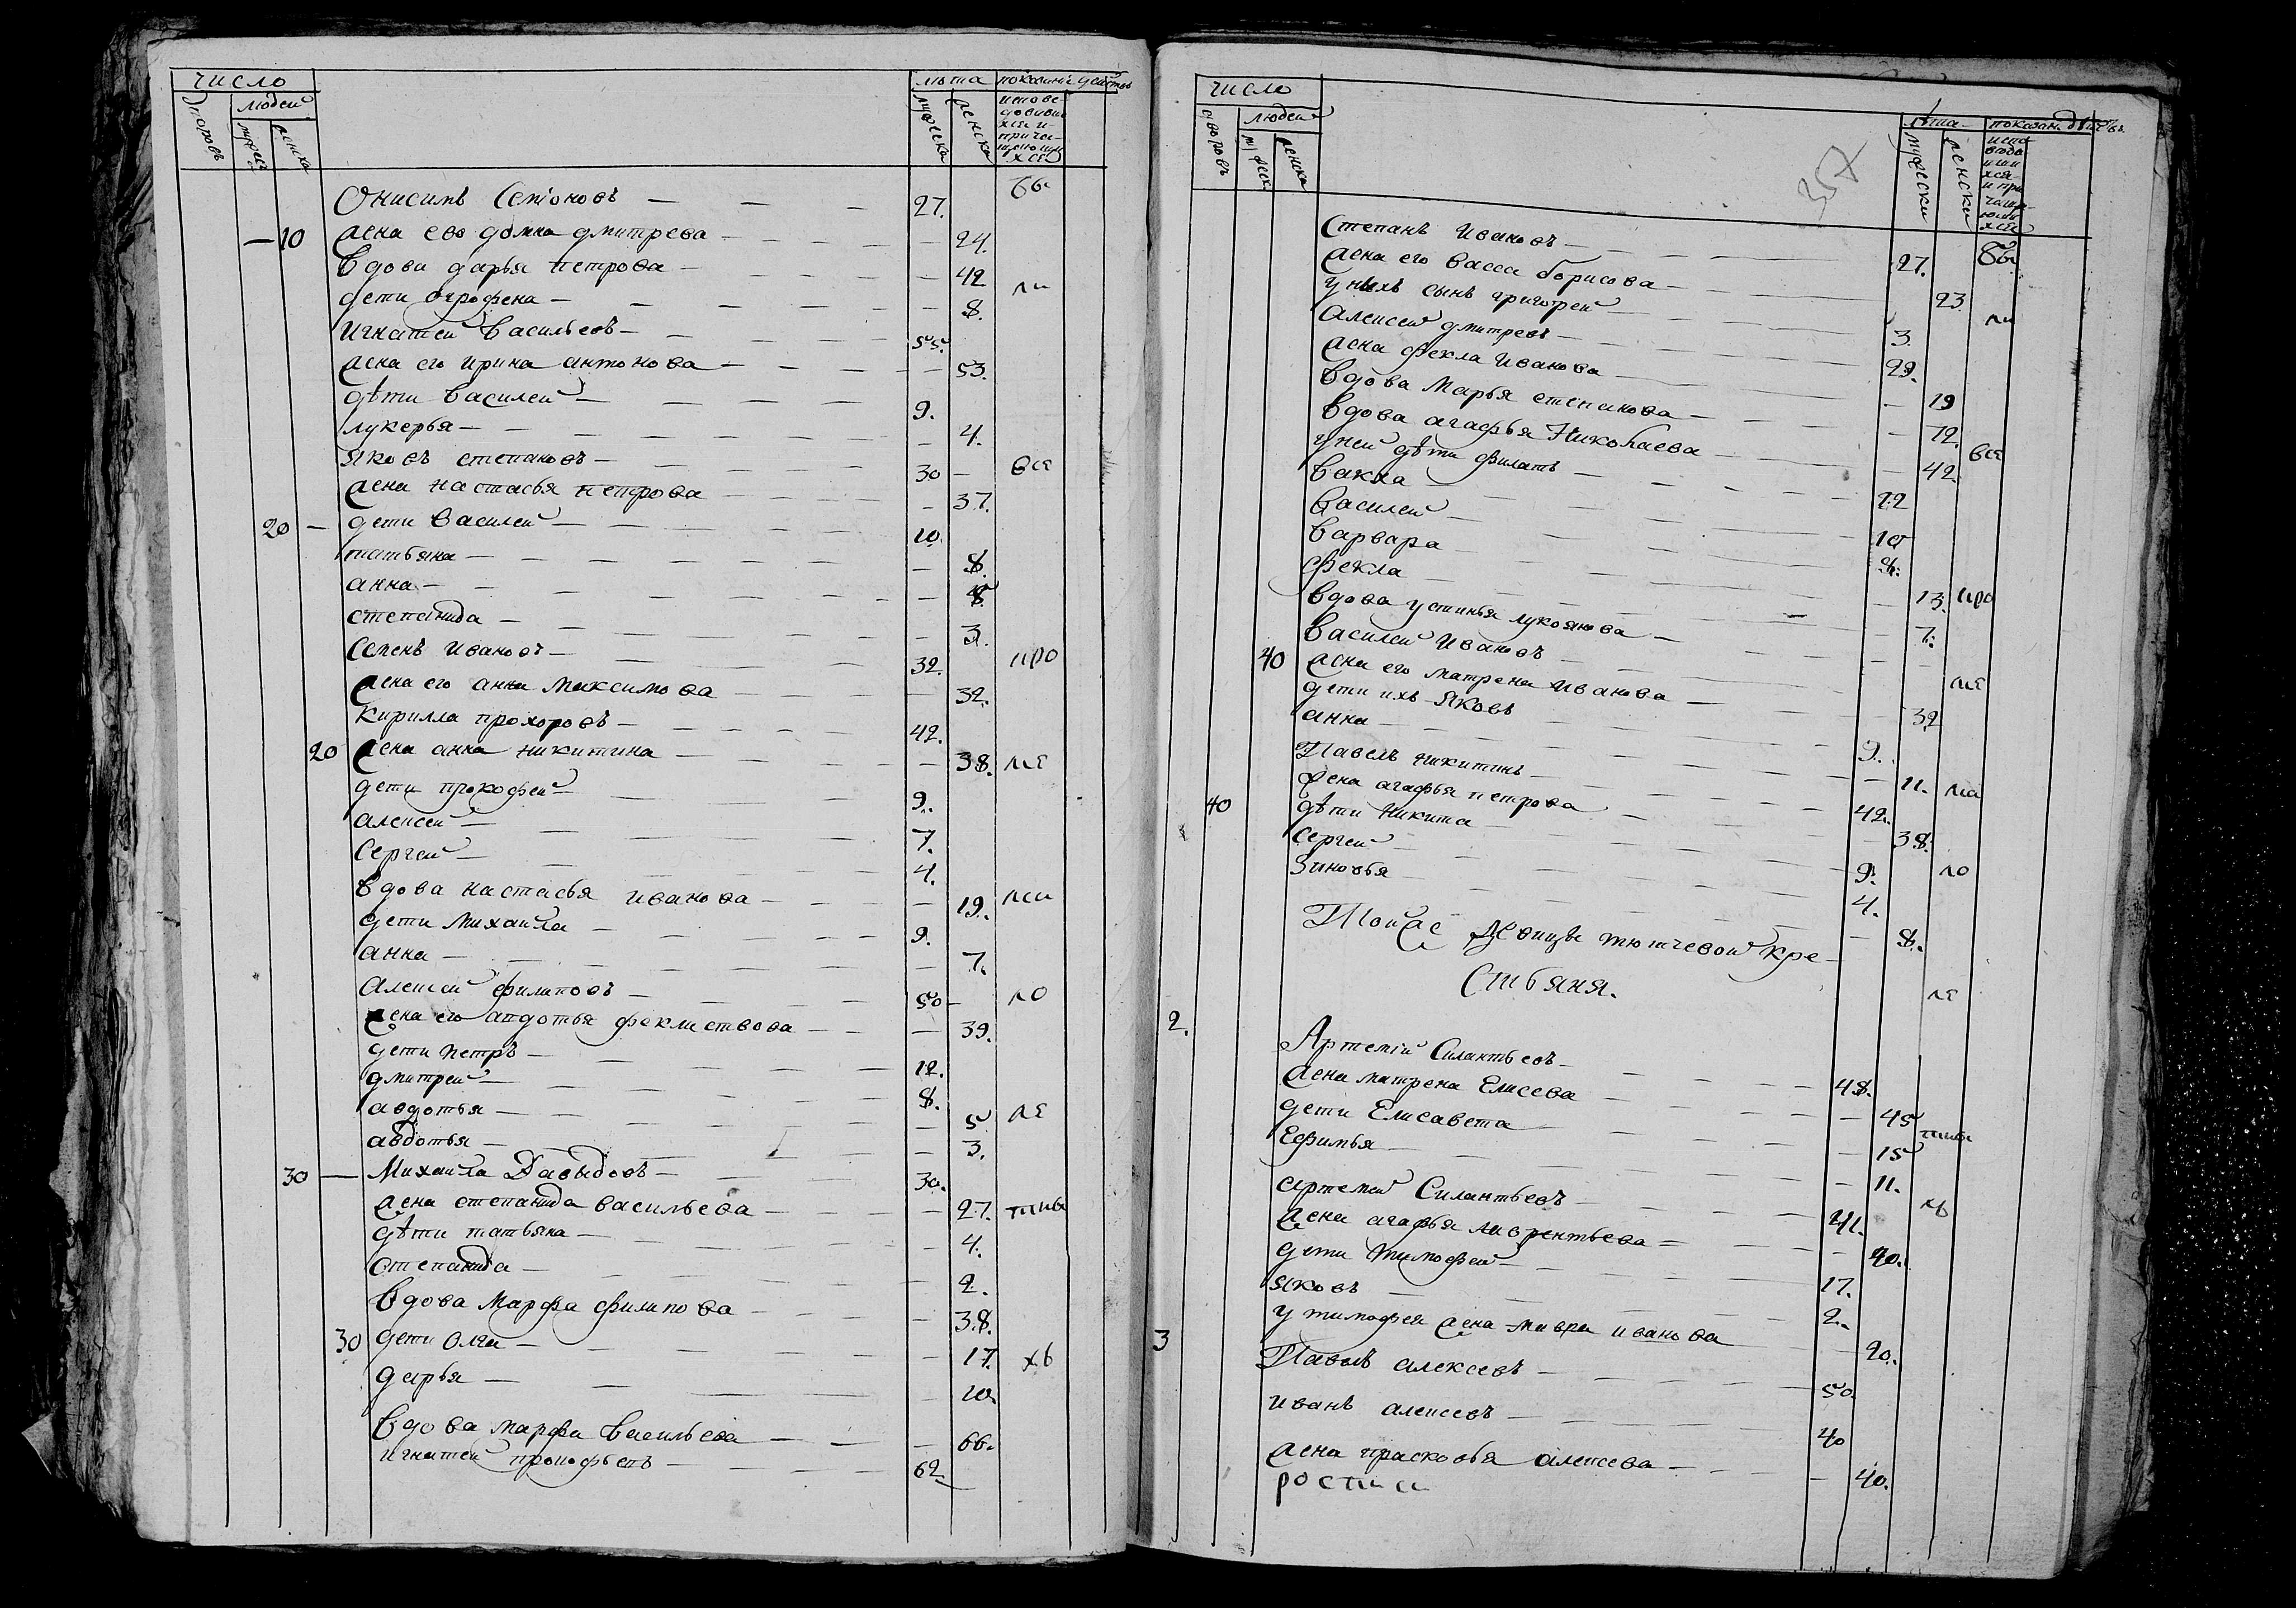 число
лѣта показание действ
дворовъ людей мужеска женска
мужеска женска испове довавши хся и прича щающи хся
Онисимъ Семионовъ — 27. бы
— 10 жена его домна дмитрева — 24.
вдова дарья петрова — 42
дети огрофена — 8. ли
игнатей васильевъ — 55.
жена его ирина антонова — 53.
дѣти василей — 9.
лукерья — 4.
яковъ степановъ — 30 — все
жена настасья петрова — 37.
20 — дети василей — 10.
татьяна — 8.
анна — 8.
степанида — 3.
семенъ ивановъ — 32. про
жена его анна максимова — 32.
кирилла прохоровъ — 42.
20 жена анна никитина — 38. ме
дети прокофей — 9.
алексей — 7.
сергей — 4.
вдова настасья иванова — 19.
дети михайла — 9.
анна — 7.
алексей филиповъ — 50 — ло
жена его авдотья феклистова — 39.
дети петръ — 12.
дмитрей — 8.
авдотья — 5 ле
авдотья — 3.
30 — михайла Давыдовъ — 30.
жена степанида васильева — 27. тны
дѣти татьяна — 4.
степанида — 2.
вдова марфа филипова — 38.
30 дети олга — 17. хъ
дарья — 10.
вдова марфа васильева — 66.
игнатей прокофьевъ — 62
число
лѣта показан. действъ
дворовъ людей муж еска женска
мужеска женска испо
357
степанъ ивановъ — 27. бы
жена его васса борисова — 23.
у нихъ сынъ григорей — 3 ли
алексей дмитревъ — 29.
жена фекла иванова — 19
вдова марья степанова — 72.
вдова агафья николаева — 42. все
у ней дѣти филатъ — 22
вакха — 10
василей — 8.
варвара — 13. про
фекла — 7.
вдова устинья лукоянова —
василей ивановъ — ме
40 жена его матрена иванова — 32
дети ихъ яковъ — 9.
анна — 11.
Павелъ никитинъ — 42.
жена агафья петрова — 38.
40 дѣти никита — 9. ло
сергей — 4.
зиновья — 8.
Тойже Девицы тютчевой кре
стьяня. ле
2. Артемий Силантьевъ — 48.
жена матрена Елисева — 45
дети Елисавета — 15 тны
Ефимья — 11.
артемей Силантьевъ — 41. хъ
жена агафья лаврентьева — 40.
дети тимофей — 17.
яковъ — 2.
у тимофея жена мавра иванова — 20.
3 Павелъ алексеевъ — 50
иванъ алексеевъ — 40
жена прасковья алексева — 40.
росписи